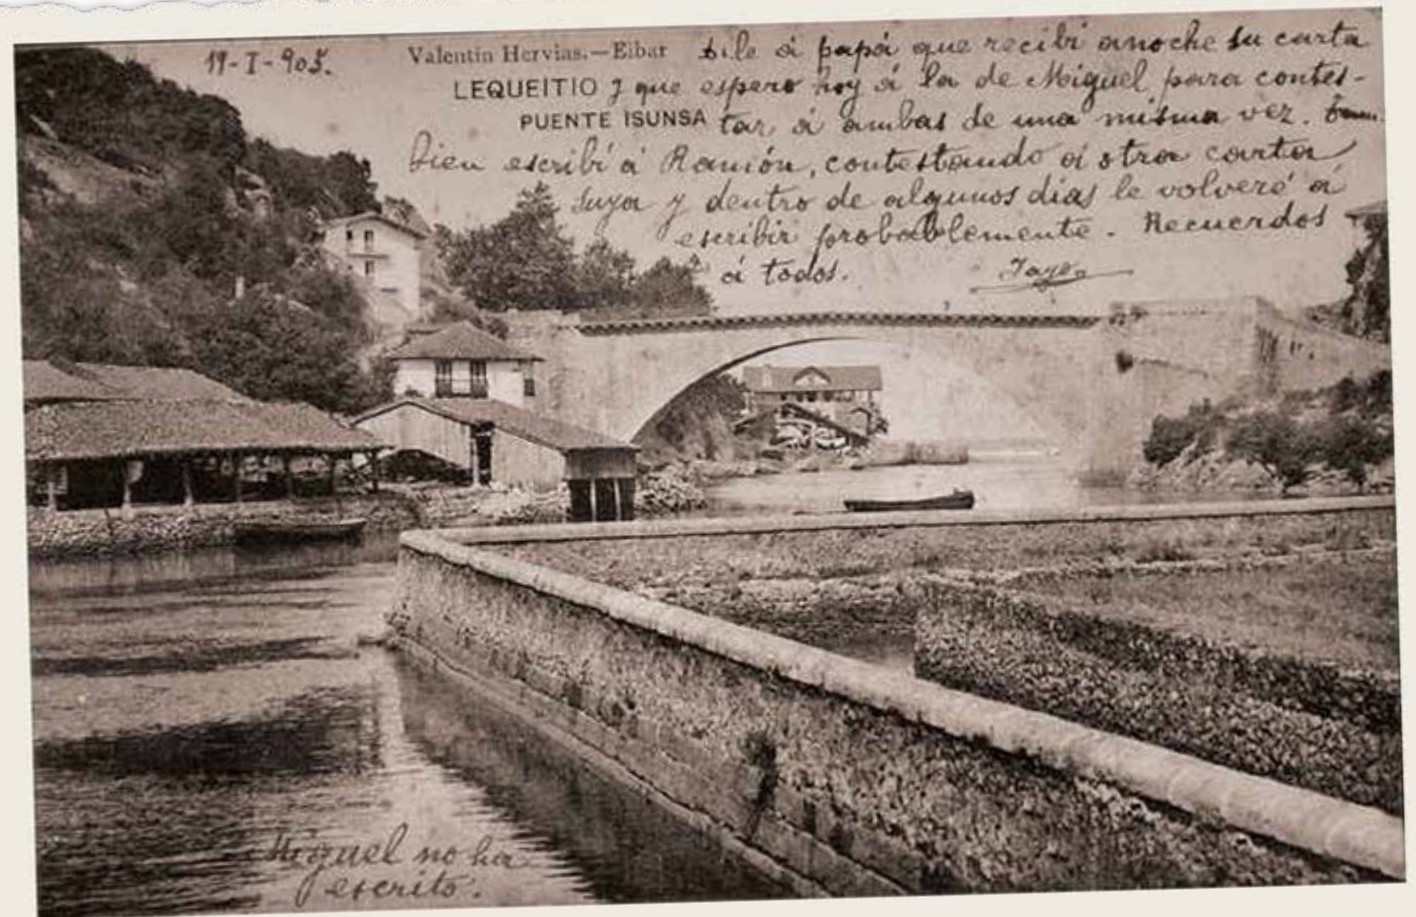 19-I-905.
Valentín Hervias.—Eibar Dile á papá que recibi anoche su carta
LEQUEITIO y que espero hoy á la de Miguel para contes-
PUENTE ISUNSA tar á ambas de una misma vez. Tam
bien escribí á Ramón, contestando á otra carta
suya y dentro de algunos dias le volveré á
escribir probablemente. Recuerdos
á todos.
Miguel no ha
escrito.